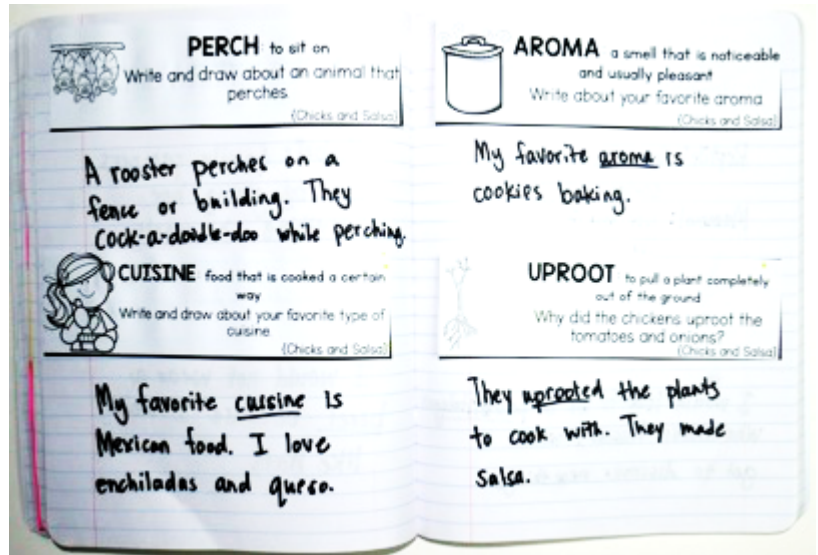 PERCH to sit on
Write and draw about an animal that
perches
{Chicks and Salsa}
A rooster perches on a
fence or building. They
cock-a-doodle-doo while perching.
CUISINE food that is cooked a certain
way
Write and draw about your favorite type of
cuisine
{Chicks and Salsa}
My favorite cuisine is
Mexican food. I love
enchiladas and queso.
AROMA a smell that is noticeable
and usually pleasant
Write about your favorite aroma
{Chicks and Salsa}
My favorite aroma is
cookies baking.
UPROOT to pull a plant completely
out of the ground
Why did the chickens uproot the
tomatoes and onions?
{Chicks and Salsa}
They uprooted the plants
to cook with. They made
salsa.